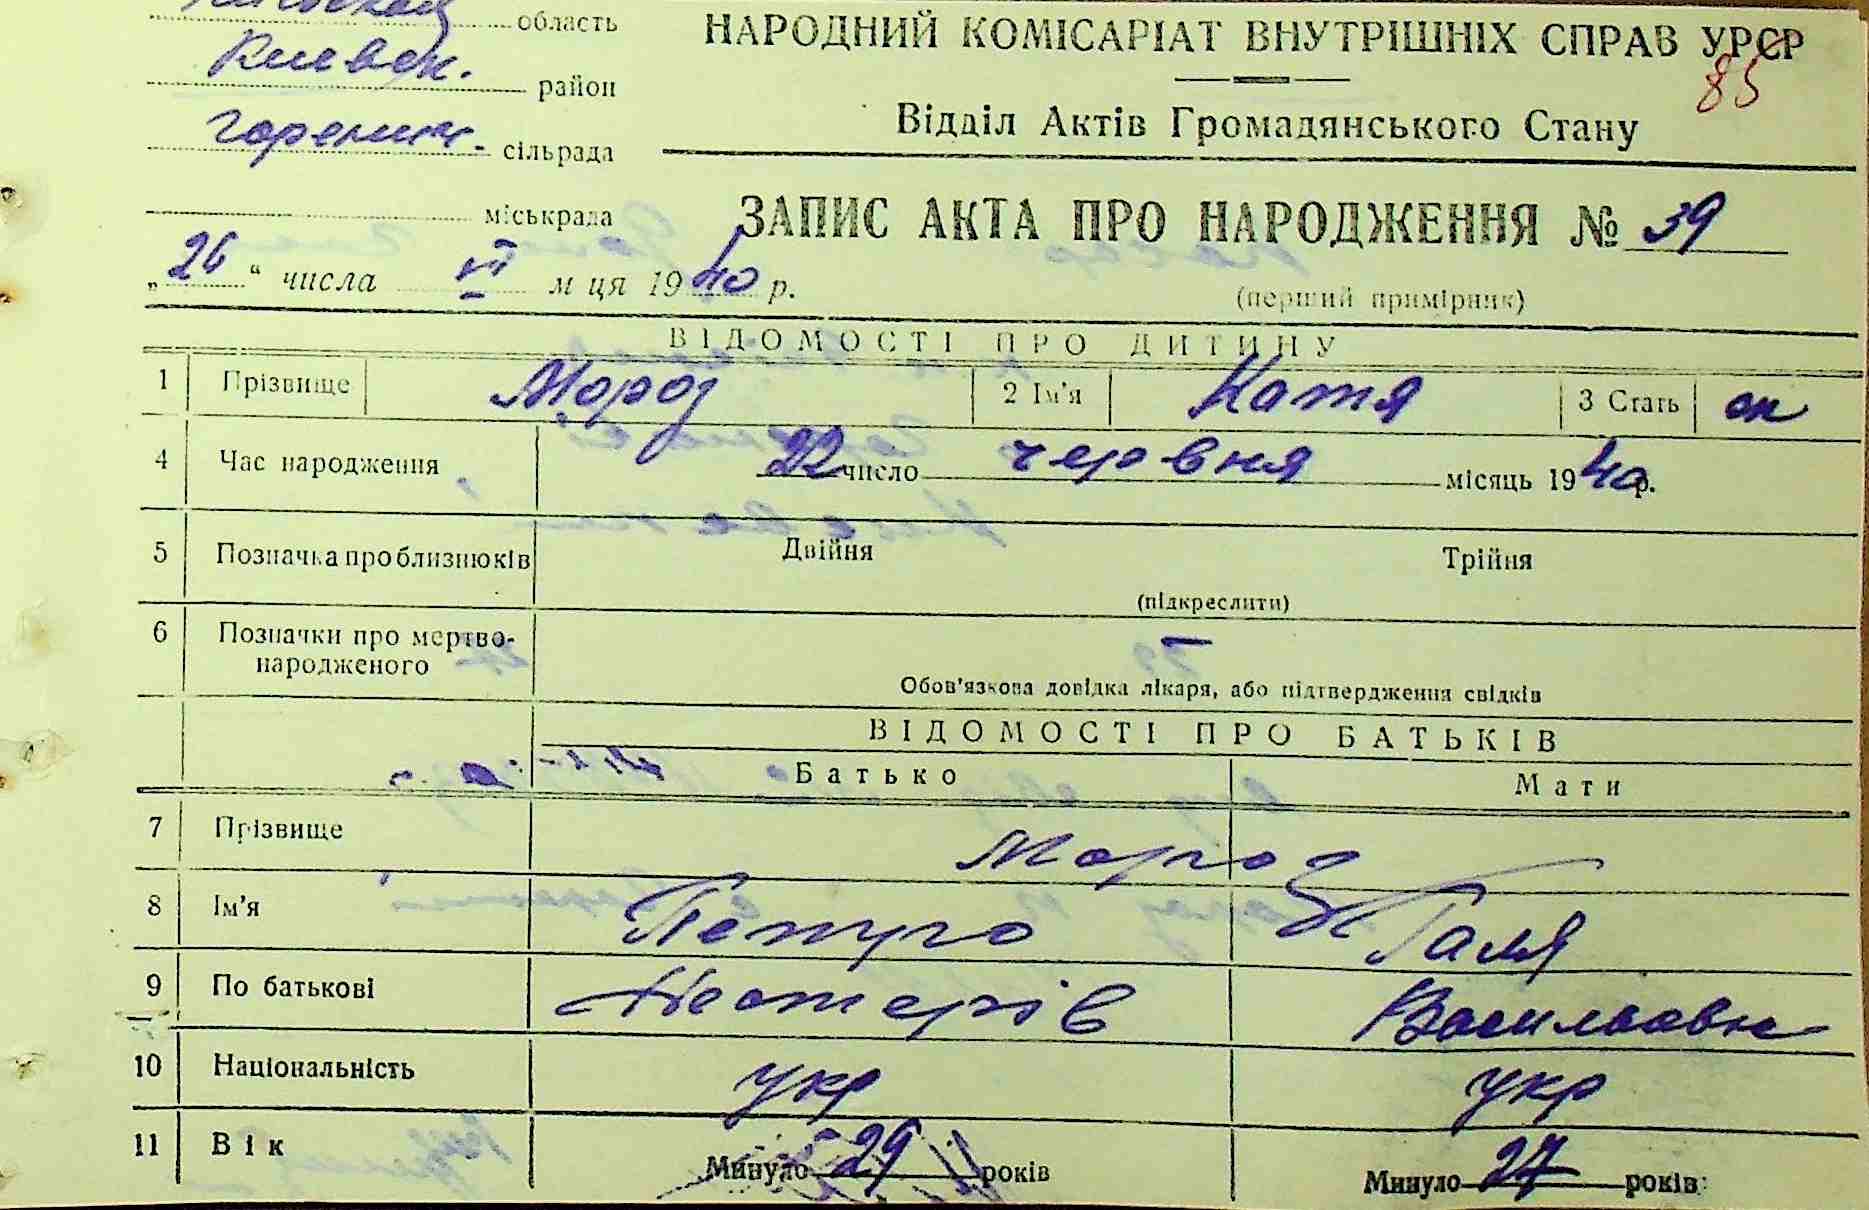 область
Киевск. район
Горенич. сільрада
міськрада
НАРОДНИЙ КОМІСАРІАТ ВНУТРІШНІХ СПРАВ УРСР
85
Відділ Актів Громадянського Стану
ЗАПИС АКТА ПРО НАРОДЖЕННЯ № 39
„26“ числа VI м ця 1940 р.
(перший примірник)
ВІДОМОСТІ ПРО ДИТИНУ
1 Прізвище Мороз 2 Ім'я Катя 3 Стать
4 Час народження 22 число червня місяць 1940 р.
5 Позначка про близнюків Двійня Трійня
(підкреслити)
6 Позначки про мертво-
народженого —
Обов'язкова довідка лікаря, або підтвердження свідків
ВІДОМОСТІ ПРО БАТЬКІВ
Батько Мати
7 Прізвище Мороз
8 Ім'я Петро Галя
9 По батькові Нестерів Васильовна
10 Національність укр укр
11 Вік Минуло 29 років Минуло 27 років